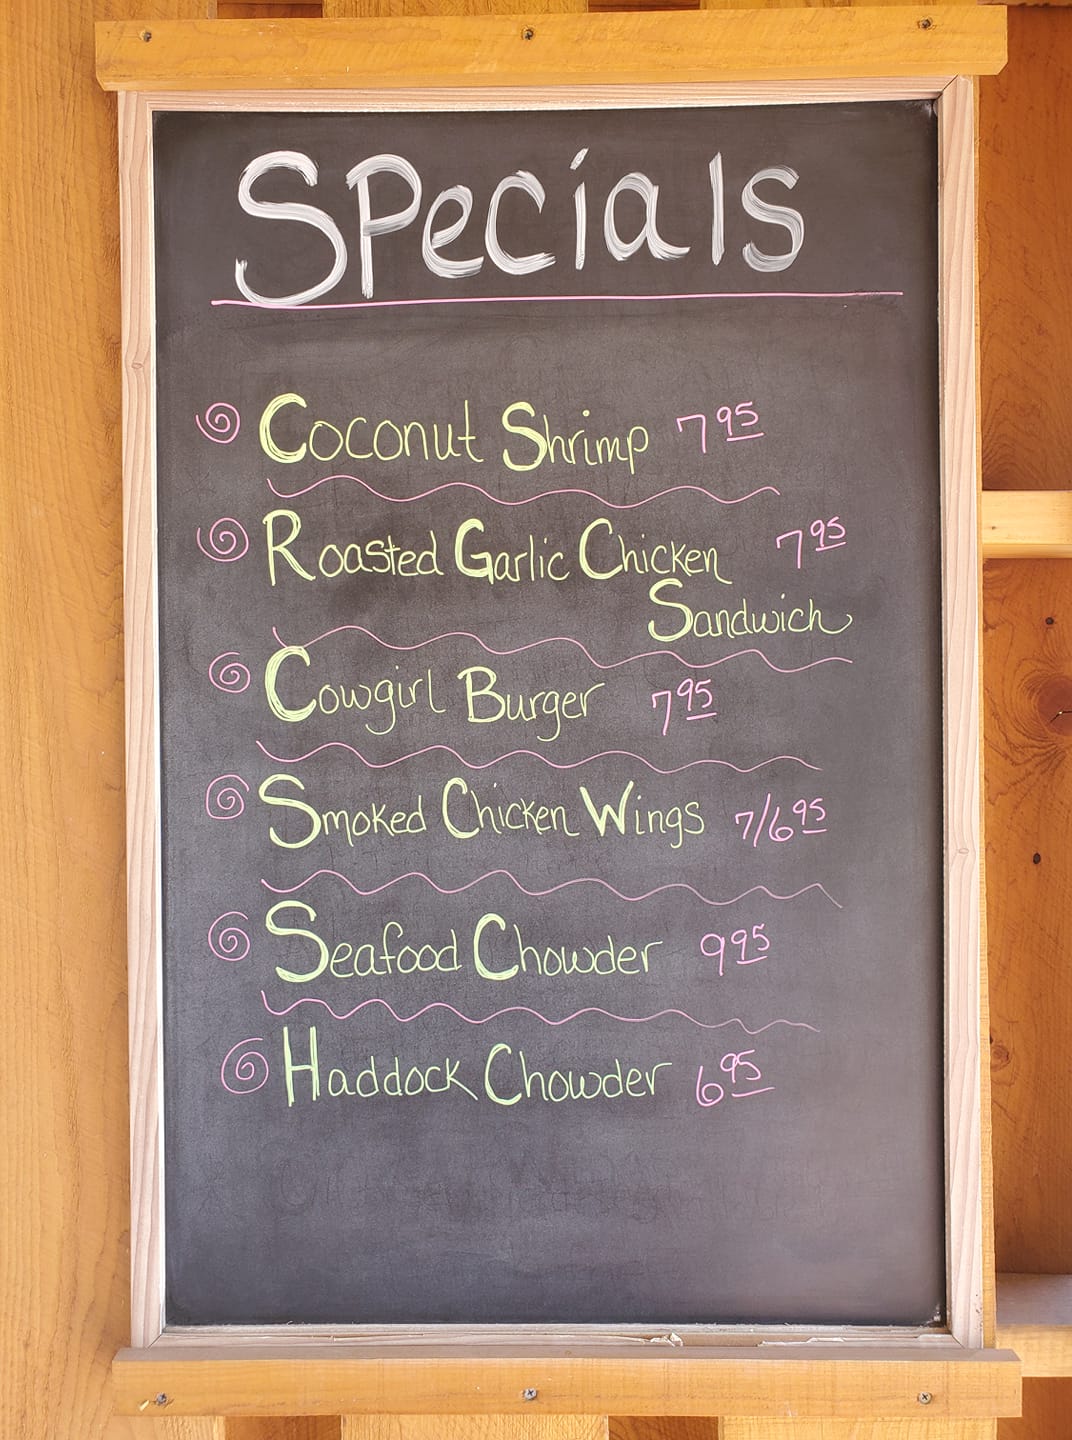 Specials
Coconut Shrimp 7 95
Roasted Garlic Chicken 7 95
Sandwich
Cowgirl Burger 7 95
Smoked Chicken Wings 7/6 95
Seafood Chowder 9 95
Haddock Chowder 6 95